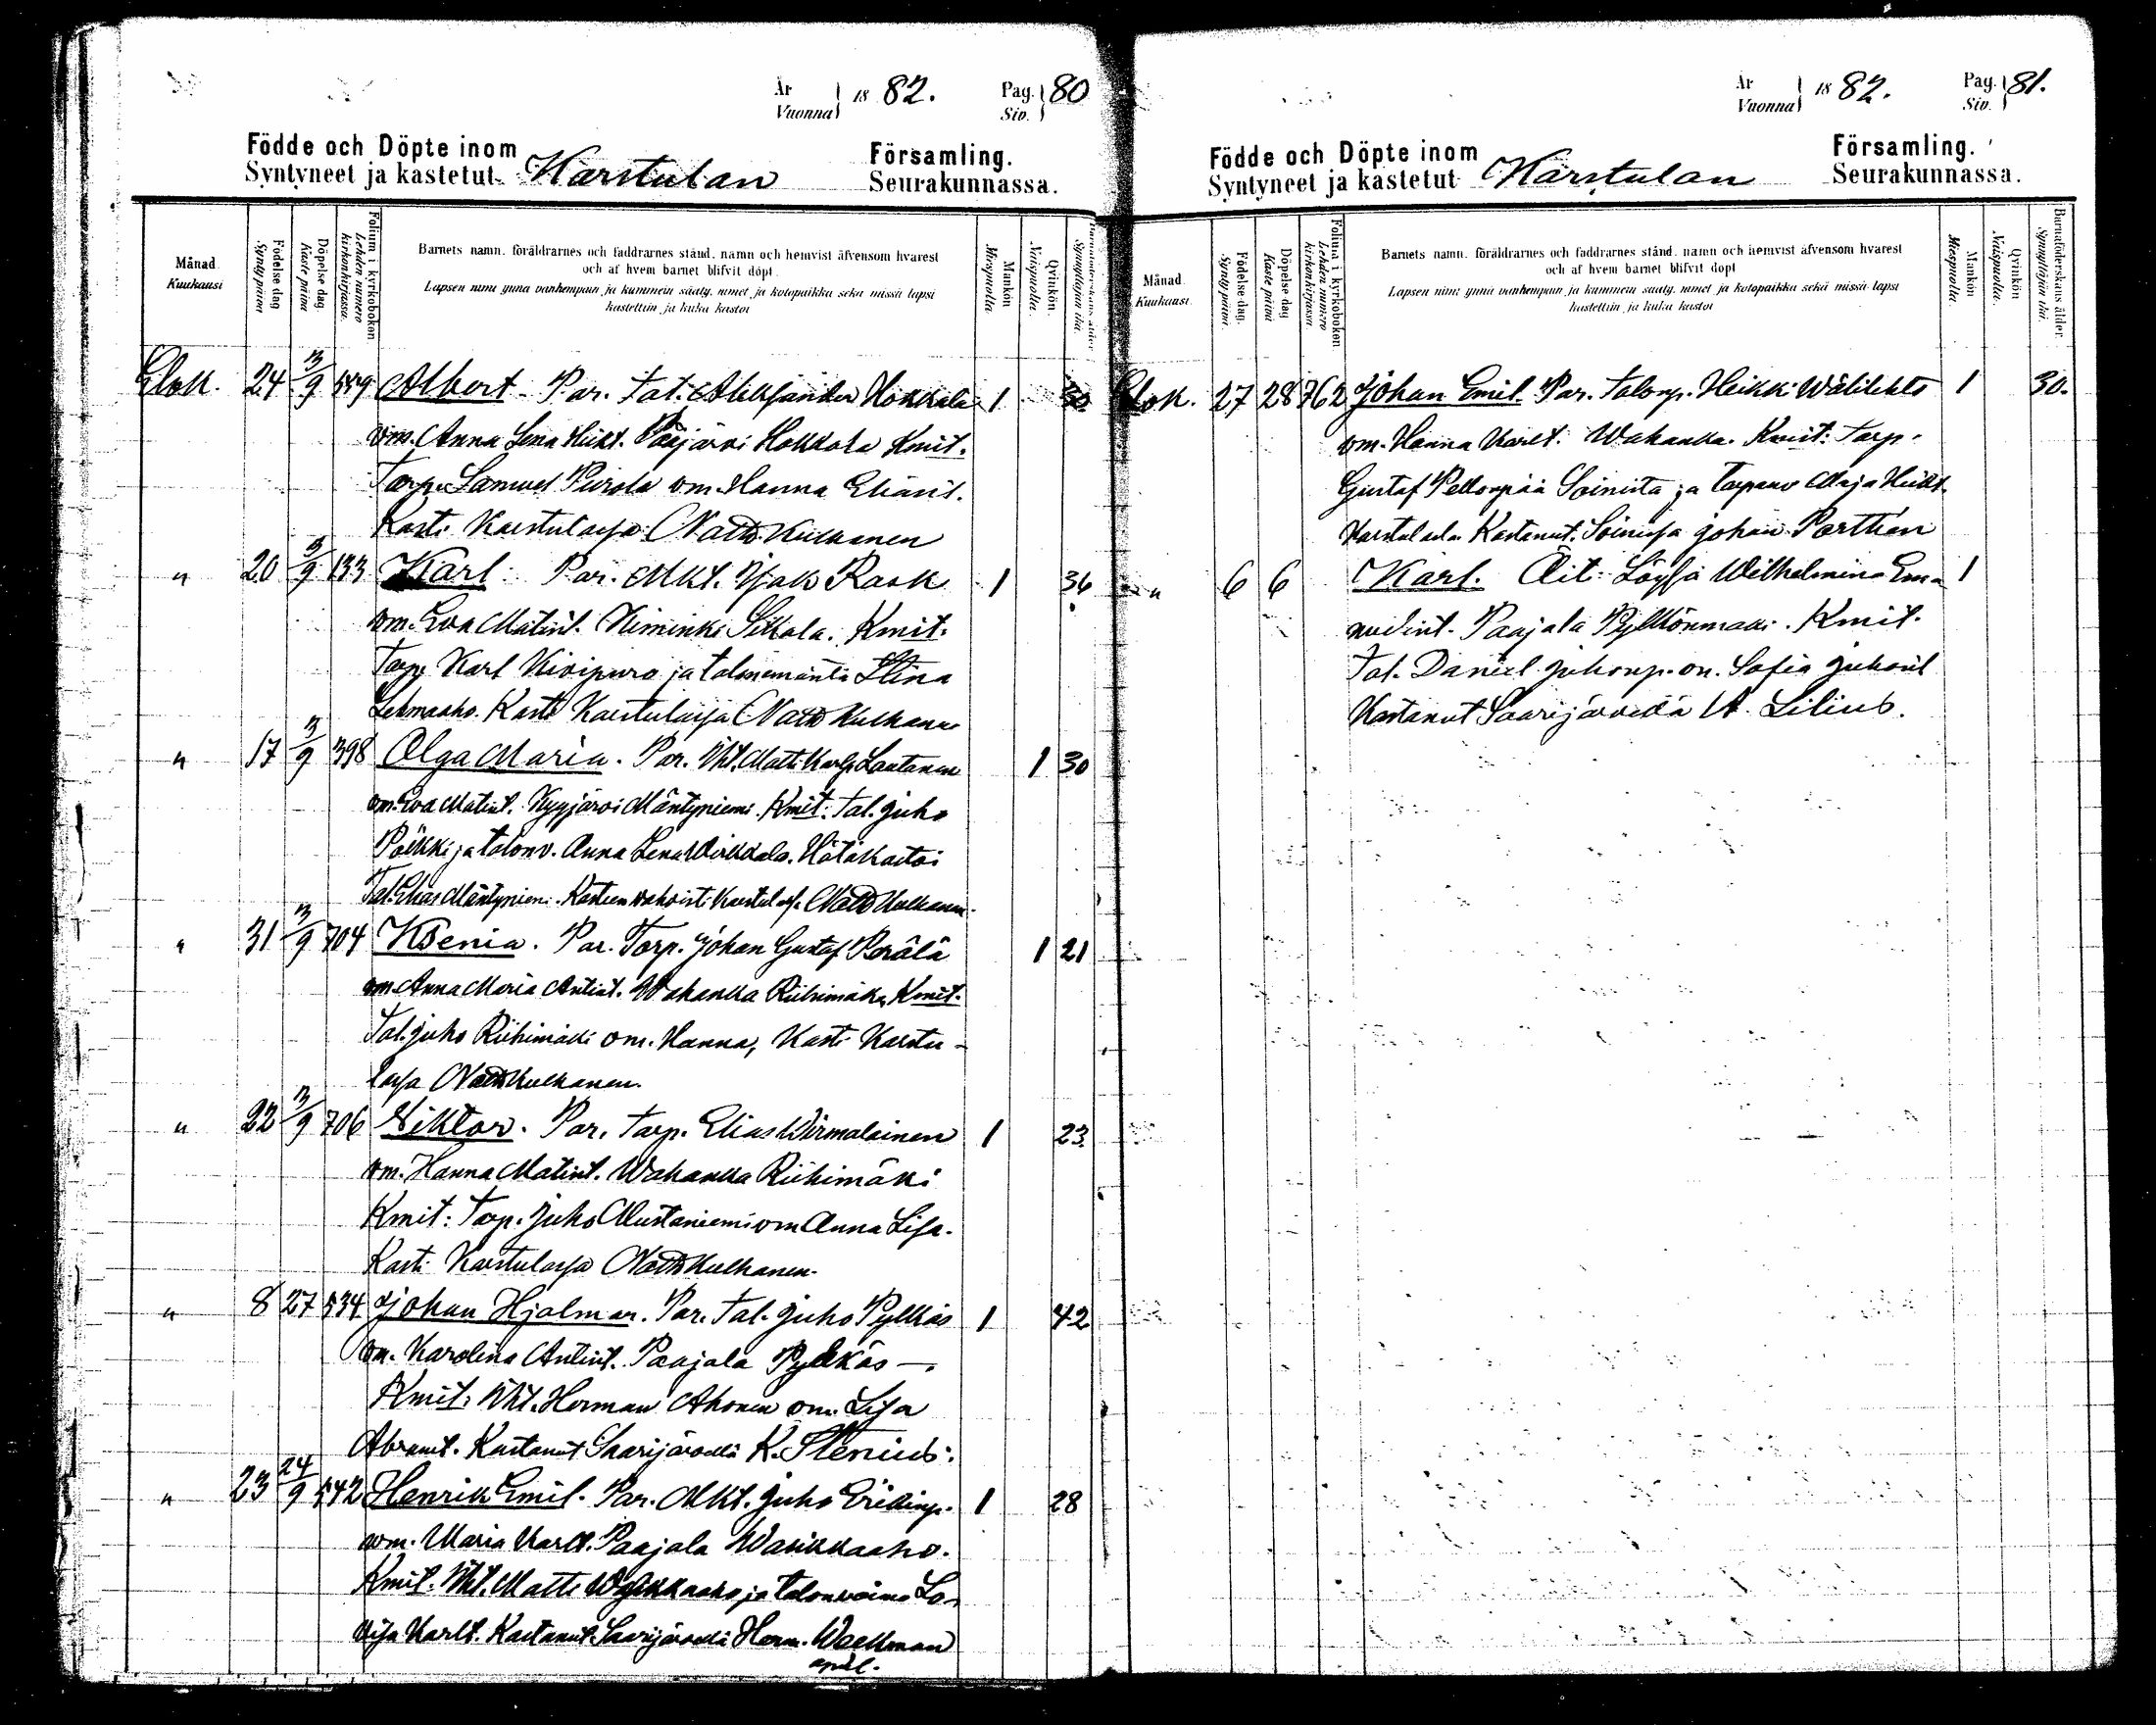 År Vuonna 1882. Pag. Siv. 80
Födde och Döpte inom Församling.
Syntyneet ja kastetut Karstulan Seurakunnassa.
Månad. Kuukausi
Födelse dag Synty päivä
Döpelse dag. Kaste päivä
Folium i kyrkoboken Lehden numero kirkonkirjassa.
Barnets namn, föräldrarnes och faddrarnes stånd, namn och hemvist äfvensom hvarest
och af hvem barnet blifvit döpt.
Lapsen nimi ynnä vanhempain ja kummein sääty, nimet ja kotopaikka sekä missä lapsi
kastettiin ja kuka kastoi
Mankön Miespuolia.
Qvinkön Naispuolia.
Barnaföderskans ålder Synnyttäjän ikä.
Elok. 24 3/9 559 Albert. Par. Tal. Aleksander Hokkala 1 30
vm. Anna Lena Heikt. Pääjärvi Hokkala Kmit.
Torp. Samuel Purola vm. Hanna Eliaxt.
Kasti Karstulassa Matts Kulkanen
" 20 3/9 133 Karl Par. Mkt. Isak Rask 1 36
vm. Eva Matint. Kiminki Sikkala. Kmit.
Torp. Karl Kivipuro ja talonemäntä Stina
Lehmaaho. Kasti Karstulassa Matts Kulkanen
" 17 3/9 398 Olga Maria. Par. Iht. Matti Karlp. Lautanen 1 30
vm. Eva Matint. Kyyjärvi Mäntyniemi. Kmit: Tal. Juho
Poikki ja talonv. Anna Lena Wirkkala. Hätäkastoi
Tal. Elias Mäntyniemi. Kasteen vahvisti Karstulass. Matts Kulkanen.
" 31 3/9 704 Ksenia. Par. Torp. Johan Gustaf Perälä 1 21
vm. Anna Maria Antint. Wahanka Riihimäki Kmit.
Tal. Juho Riihimäki vm. Hanna, Kasti Karstu-
lassa Matts Kulkanen.
" 22 3/9 706 Viktor. Par. Torp. Elias Wirmalainen 1 23.
vm. Hanna Matint. Wahanka Riihimäki
Kmit: Torp. Juho Mustaniemi vm Anna Lisa.
Kasti Karstulassa Matts Kulkanen.
" 8 27 534 Johan Hjalmar. Par. Tal. Juho Pylkäs 1 42
vm. Karolina Antint. Paajala Pylkäs –.
Kmit: Iht. Herman Ahonen vm. Lisa
Abramt. Kastanut Saarijärvellä K. Stenius.
" 23 24/9 542 Henrik Emil. Par. Mkt. Juho Erikinp. 1 28
vm. Maria Karlt. Paajala Warikkaaho.
Kmit. Iht. Matti Warikkaaho ja talonvaimo Lo-
visa Karlt. Kastanut Saarijärvellä Herm. Waelkman
apul.
År Vuonna 1882. Pag. Siv. 81.
Födde och Döpte inom Församling.
Syntyneet ja kastetut Karstulan Seurakunnassa.
Månad. Kuukausi.
Födelse dag. Synty päivä.
Döpelse dag Kaste päivä
Folium i kyrkoboken Lehden numero kirkonkirjassa
Barnets namn, föräldrarnes och faddrarnes stånd, namn och hemvist äfvensom hvarest
och af hvem barnet blifvit döpt
Lapsen nimi ynnä vanhempain ja kummein sääty, nimet ja kotopaikka sekä missä lapsi
kastettiin ja kuka kastoi
Mankön Miespuolia.
Qvinkön Naispuolia.
Barnaföderskans ålder. Synnyttäjän ikä.
Elok. 27 28 762 Johan Emil. Par. Talonp. Heikki Wälilehto 1 30.
vm. Hanna Karlt. Wahanka. Kmit: Torp.
Gustaf Pellonpää Soinista ja Torpanv Maja Heikt.
Karstulasta Kastanut. Soinissa Johan Porthan
" 6 6 Karl. Äit: Löysä Wilhelmina Ema- 1
nuelint. Paajala Pylkönmäki. Kmit.
Tal. Daniel Juhonp. vm. Sofia Juhont
Kastanut Saarijärvellä A. Lilius.